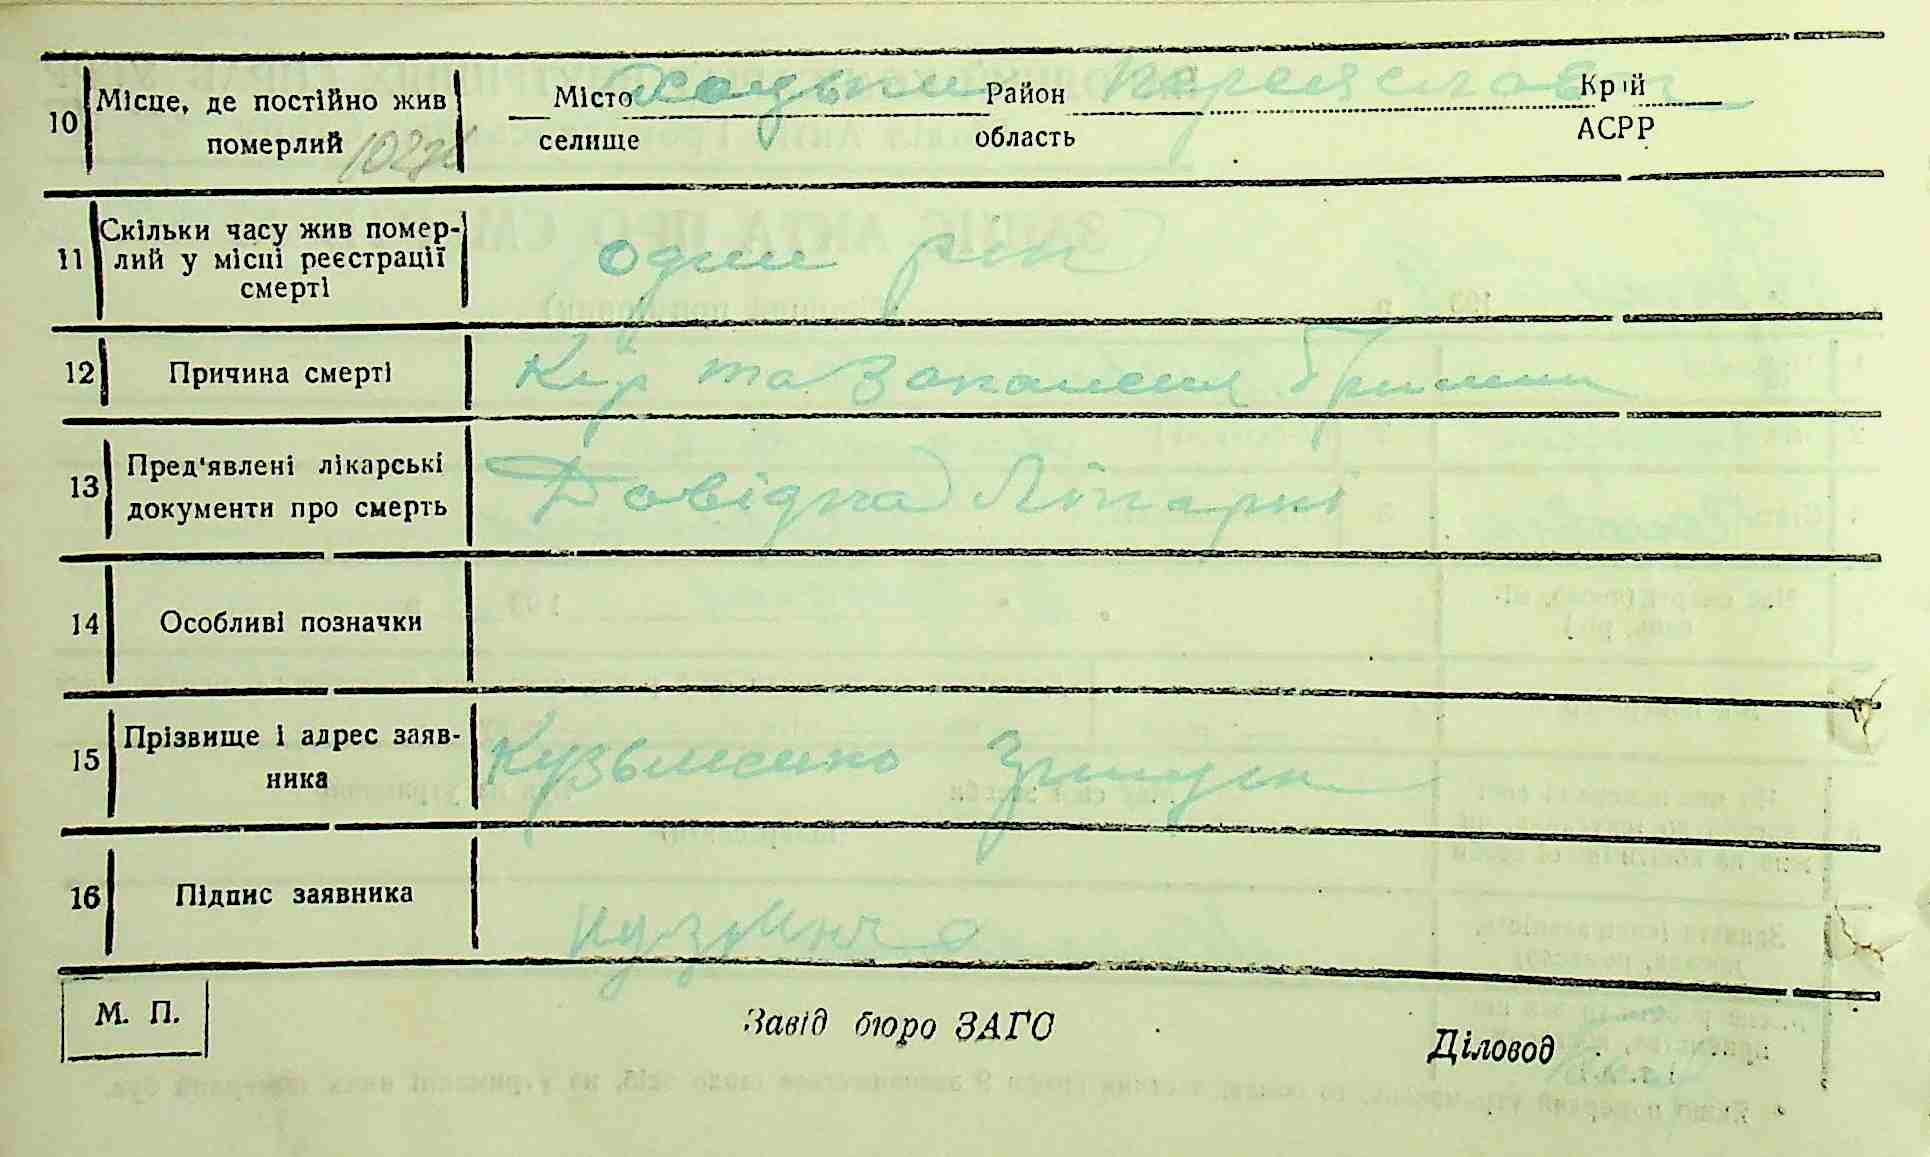 10 Місце, де постійно жив померлий Місто селище Район область Переяслав Край АСРР
11 Скільки часу жив померлий у місці реєстрації смерті один рік
12 Причина смерті Кір та запалення
13 Пред'явлені лікарські документи про смерть Довідка Лікарні
14 Особливі позначки
15 Прізвище і адрес заявника Кузьменко
16 Підпис заявника
М. П. Завід бюро ЗАГС Діловод